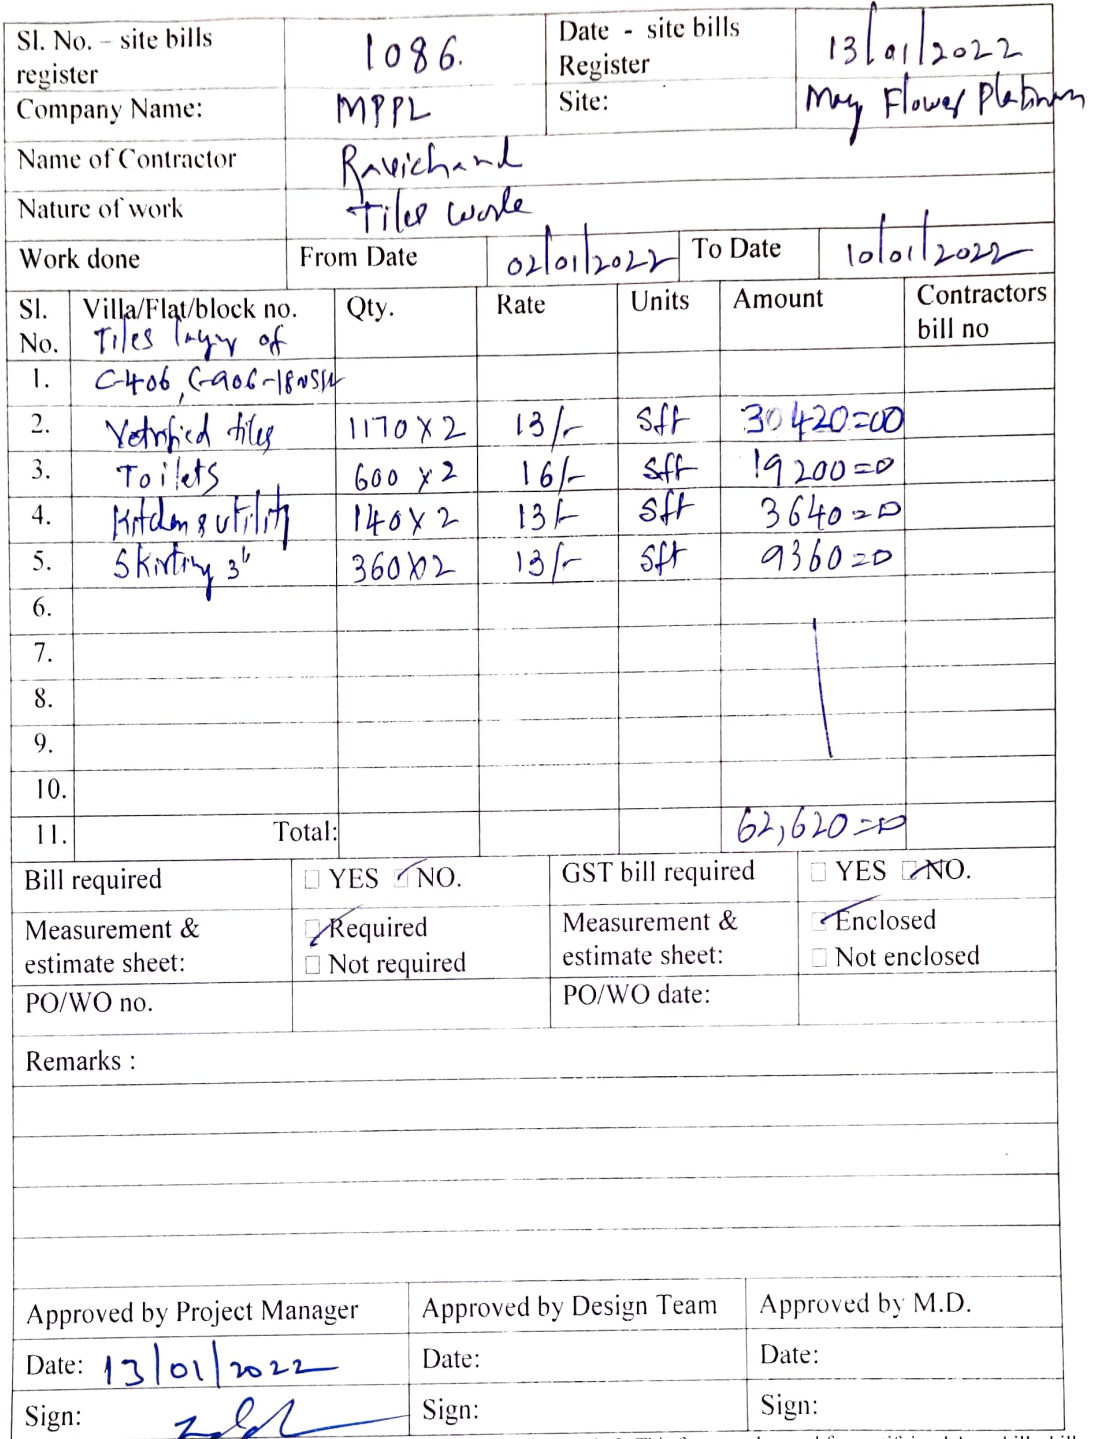 Sl. No. – site bills register 1086. Date - site bills Register 13/01/2022
Company Name: MPPL Site: May Flower Platinum
Name of Contractor Ravichand
Nature of work Tiles work
Work done From Date 02/01/2022 To Date 10/01/2022
Sl. No. Villa/Flat/block no. Qty. Rate Units Amount Contractors bill no
Tiles of
1. C-406, C-906-
2. Vetrified tiles 1170 X 2 13/- Sft 30420=00
3. Toilets 600 x 2 16/- Sft 19200=0
4. Kitchen & utility 140 X 2 13/- Sft 3640=0
5. Skirting 3" 360X2 13/- Sft 9360=0
6.
7.
8.
9.
10.
11. Total: 62,620=0
Bill required □ YES □ NO. GST bill required □ YES □ NO.
Measurement & estimate sheet: □ Required □ Not required Measurement & estimate sheet: □ Enclosed □ Not enclosed
PO/WO no. PO/WO date:
Remarks :
Approved by Project Manager Approved by Design Team Approved by M.D.
Date: 13/01/2022 Date: Date:
Sign: Sign: Sign: